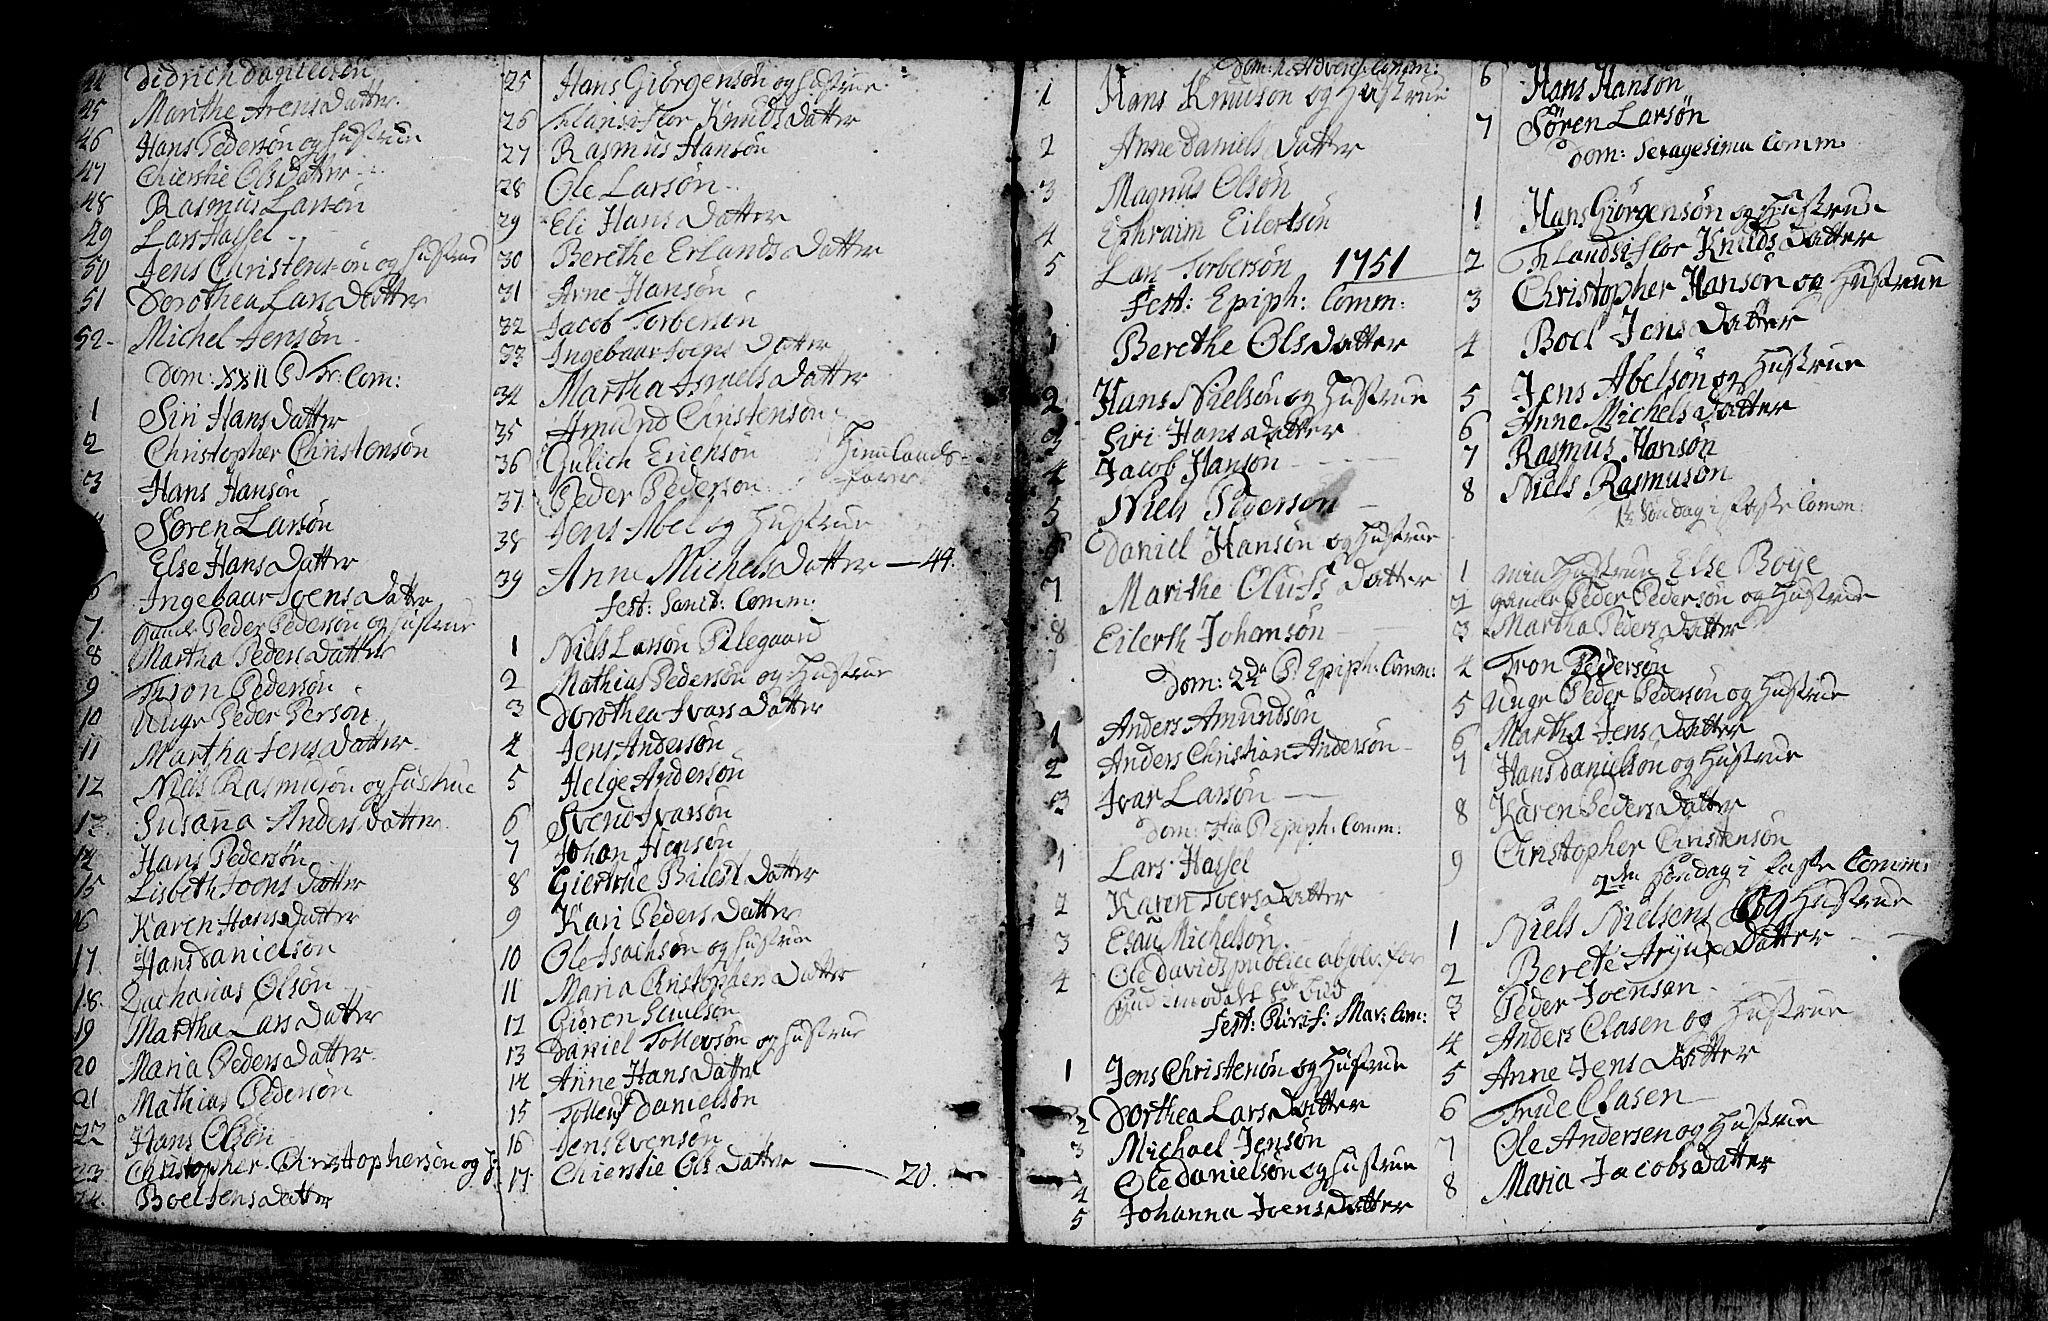 44 Didrich Danielsøn
45 Marithe Arens Datter
46 Hans Pedersøn og Hustrue
47 Chierstie Ols Datter
48 Rasmus Larsøn
49 Lars Hassel
50 Jens Christensøn og Hustrue
51 Dorothea Lars Datter
52 Michel Jensøn
Dom: XXII P. Tr: Com:
1 Siri Hans Datter
2 Christopher Christensøn
3 Hans Hansøn
Søren Larsøn
Else Hans Datter
6 Ingebaar Joens Datter
7 gamle Peder Pedersøn og Hustrue
8 Martha Peders Datter
9 Tron Pedersøn
10 Unge Peder Persøn
11 Martha Jens Datter
12 Niels Rasmusøn og Hustrue
13 Susanna Anders Datter
14 Hans Pedersøn
15 Lisbeth Joens Datter
16 Karen Hans Datter
17 Hans Danielsøn
18 Zacharias Olsøn
19 Martha Lars Datter
20 Maria Peders Datter
21 Mathias Pedersøn
22 Hans Olsøn
23 Christopher Christophersøn og H:
24 Boel Jens Datter
25 Hans Giørgensøn og Hustrue
26 Knuds Datter
27 Rasmus Hansøn
28 Ole Larsøn
29 Eli Hans Datter
30 Berethe Erlands Datter
31 Arne Hansøn
32 Jacob Torbersøn
33 Ingebaar Joens Datter
34 Martha Asmels Datter
35 Amund Christensøn
36 Gulich Erichsøn
37 Peder Pedersøn
38 Jens Abel og Hustrue
39 Anne Michels Datter — 44.
Fest: Sanct: Comm:
1 Niels Larsøn Pilegaard
2 Mathias Pedersøn og Hustrue
3 Dorothea Ivars Datter
4 Jens Andersøn
5 Helge Andersøn
6 Svend Ivarsøn
7 Johan Hensøn
8 Giertrue Datter
9 Kari Peders Datter
10 Ole Isachsøn og Hustrue
11 Maria Christophers Datter
12 Giøren
13 Daniel Tollevsøn og Hustrue
14 Anne Hans Datter
15 Tollef Danielsøn
16 Jens Evensøn
17 Chierstie Ols Datter — 20.
Dom: 1. Advent: Comm:
1 Hans Knudsøn og Hustrue
2 Anne Daniels Datter
3 Magnus Olsøn
4 Ephraim Eilertsøn
5 Lars Torbersøn 1751
Fest: Epiph: Comm:
1 Berethe Ols Datter
2 Hans Nielsøn og Hustrue
3 Siri Hans Datter
4 Jacob Hansøn
5 Niels Pedersøn
6 Daniel Hansøn og Hustrue
7 Marithe Olufs Datter
8 Eilerth Johansøn
Dom: 2da P. Epiph: Comm:
1 Anders Amundsøn
2 Anders Christian Andersøn
3 Ivar Larsøn
Dom: 3tia P. Epiph: Comm:
1 Lars Hassel
2 Karen Ivers Datter
3 Esau Michelsøn
4 Ole Davids publice absolv: for
Fest: Purif: Mar: Com:
1 Jens Christensøn og Hustrue
2 Dorthea Lars Datter
3 Michael Jensøn
4 Ole Danielsøn og Hustrue
5 Johanna Joens Datter
6 Hans Hansøn
7 Søren Larsøn
Dom: Sexagesima Comm:
1 Hans Giørgensøn og Hustrue
2 Knuds Datter
3 Christopher Hansøn og Hustrue
4 Boel Jens Datter
5 Jens Abelsøn og Hustrue
6 Anne Michels Datter
7 Rasmus Hansøn
8 Niels Rasmusøn
1te Søndag i Faste Comm:
1 min Hustrue Else Boÿe
2 gamle Peder Pedersøn og Hustrue
3 Martha Peders Datter
4 Tron Pedersøn
5 Unge Peder Pedersøn og Hustrue
6 Martha Jens Datter
7 Hans Danielsøn og Hustrue
8 Karen Peders Datter
9 Christopher Christensøn
2den Søndag i Faste Comm:
1 Niels Nielsens og Hustrue
2 Berete Datter
3 Peder Joensøn
4 Anders Clasen og Hustrue
5 Anne Jens Datter
6 Clasen
7 Ole Andersen og Hustrue
8 Maria Jacobs Datter